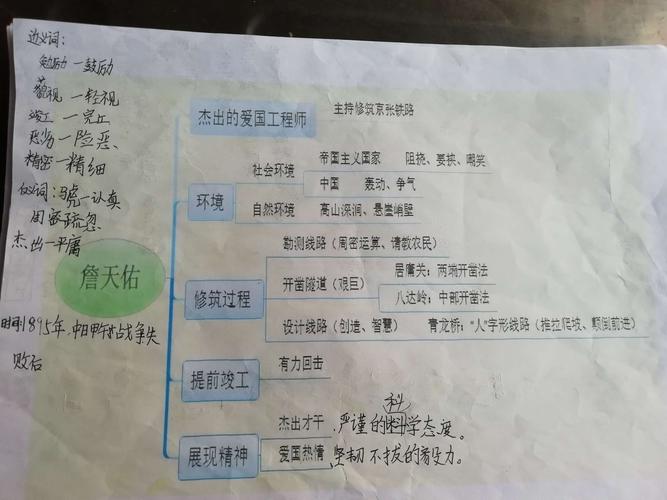 近义词：
勉励—鼓励
藐视—轻视
竣工—完工
恶劣—险恶、
精密—精细
反义词：马虎—认真
周密—疏忽
杰出—平庸
詹天佑
时间1895年，中日甲午战争失
败后
杰出的爱国工程师
主持修筑京张铁路
环境
社会环境
帝国主义国家 阻挠、要挟、嘲笑
中国 轰动、争气
自然环境
高山深涧、悬崖峭壁
修筑过程
勘测线路（周密运算、请教农民）
开凿隧道（艰巨）
居庸关：两端开凿法
八达岭：中部开凿法
设计线路（创造、智慧）
青龙桥：“人”字形线路（推拉爬坡、颠倒前进）
提前竣工
有力回击
展现精神
杰出才干
严谨的科学态度。
爱国热情
坚韧不拔的毅力。